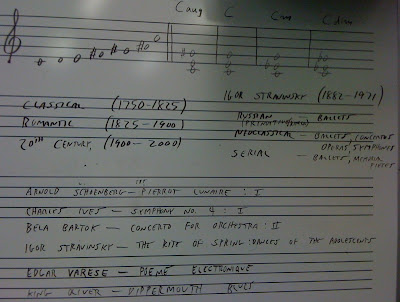 C aug C Cm C dim
CLASSICAL (1750-1825)
ROMANTIC (1825-1900)
20TH CENTURY (1900-2000)
IGOR STRAVINSKY (1882-1971)
RUSSIAN BALLETS
NEOCLASSICAL - BALLETS, CONCERTOS
OPERAS, SYMPHONIES
SERIAL - BALLETS, MEMORIAL
PIECES
ARNOLD SCHOENBERG - PIERROT LUNAIRE : I
CHARLES IVES - SYMPHONY NO. 4 : I
BELA BARTOK - CONCERTO FOR ORCHESTRA : II
IGOR STRAVINSKY - THE RITE OF SPRING : DANCES OF THE ADOLESCENTS
EDGAR VARESE - POEME ELECTRONIQUE
KING OLIVER - DIPPERMOUTH BLUES